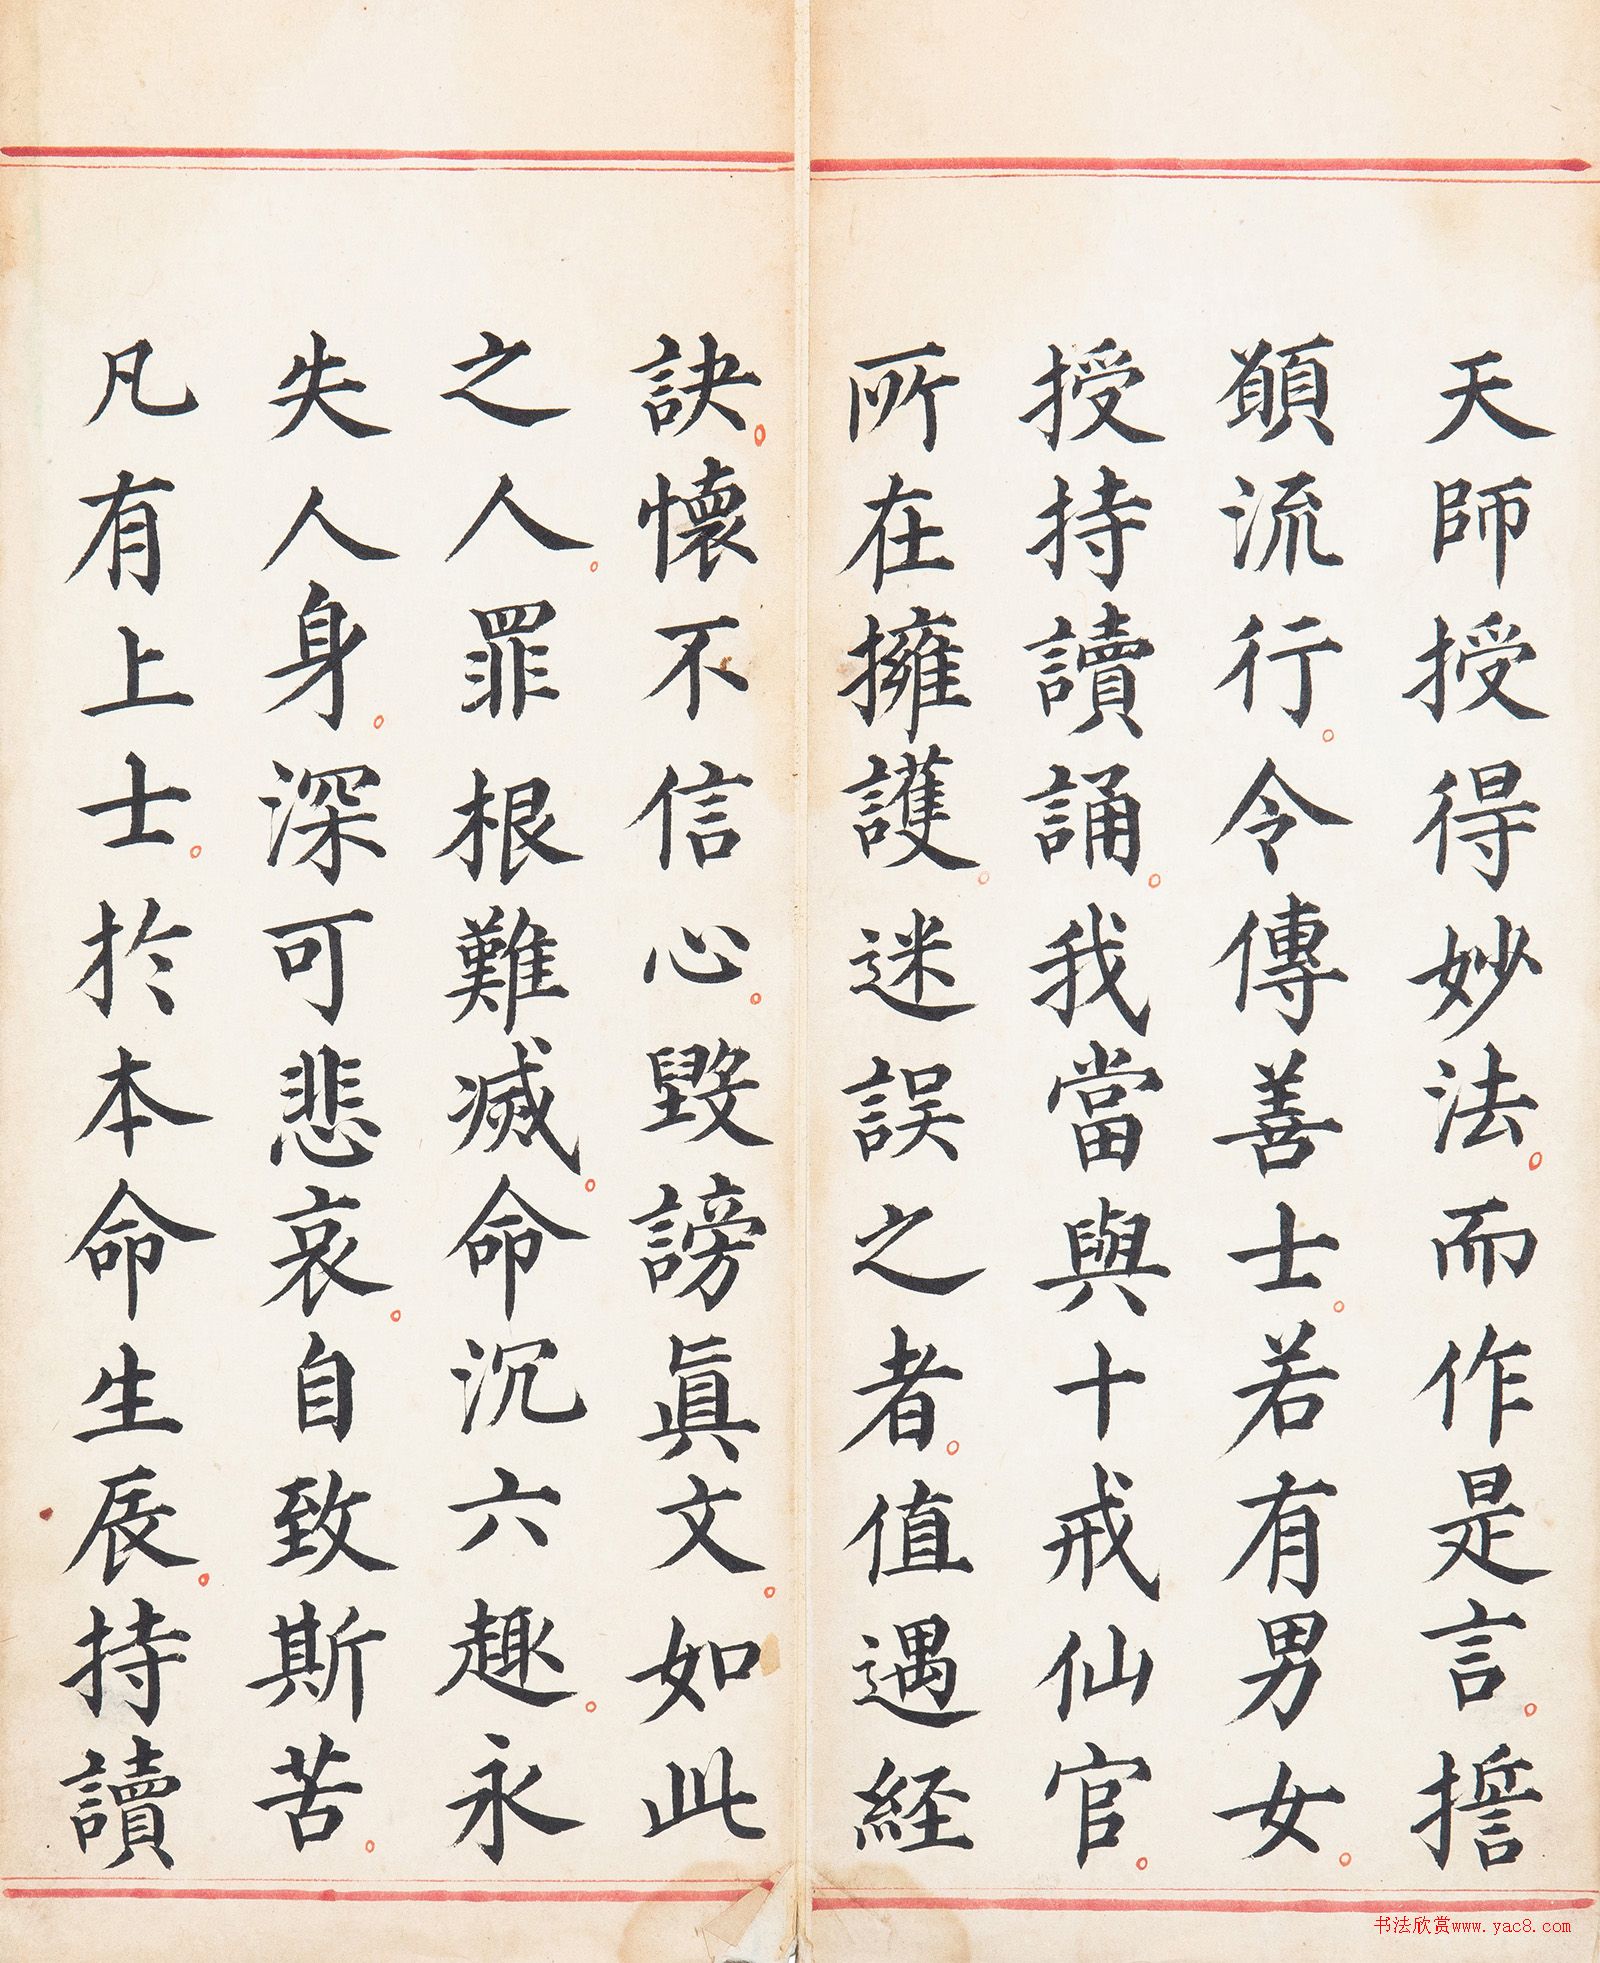 天師授得妙法。而作是言。擔
願流行。令傳善士。若有男女。
授持讀誦。我當與十戒仙官。
所在擁護。迷誤之者。值遇経
訣。懷不信心。毀謗眞文。如此
之人。罪根難滅。命沉六趣。永
失人身。深可悲哀。自致斯苦。
凡有上士。於本命生辰。持讀
书法欣赏www.yac8.com